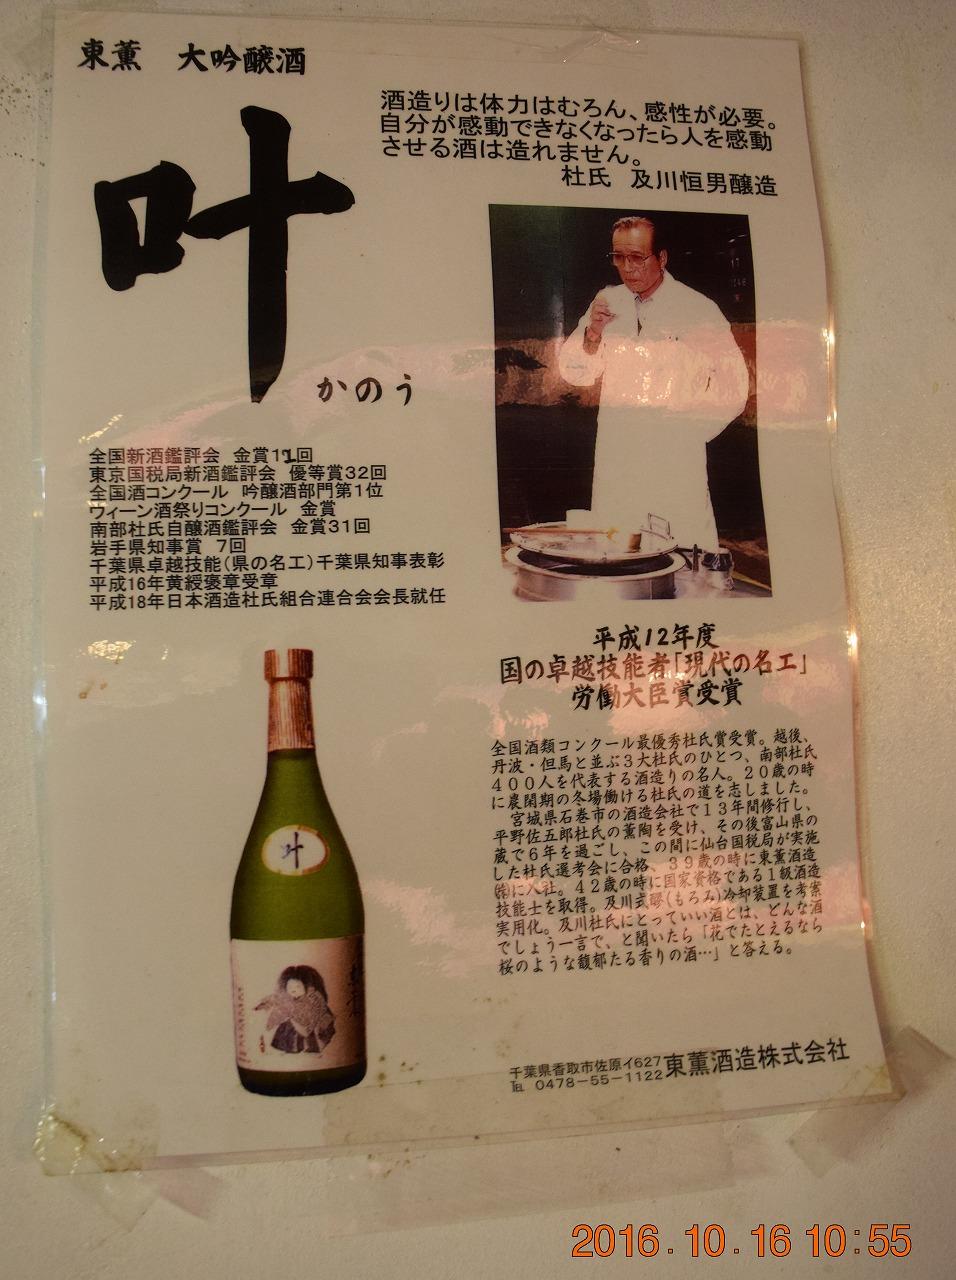 東薫　大吟醸酒
叶
かのう
酒造りは体力はむろん、感性が必要。
自分が感動できなくなったら人を感動
させる酒は造れません。
杜氏　及川恒男醸造
全国新酒鑑評会　金賞11回
東京国税局新酒鑑評会　優等賞32回
全国酒コンクール　吟醸酒部門第1位
ウィーン酒祭りコンクール　金賞
南部杜氏自醸酒鑑評会　金賞31回
岩手県知事賞　7回
千葉県卓越技能（県の名工）千葉県知事表彰
平成16年黄綬褒章受章
平成18年日本酒造杜氏組合連合会会長就任
平成12年度
国の卓越技能者「現代の名工」
労働大臣賞受賞
全国酒類コンクール最優秀杜氏賞受賞。越後、
丹波・但馬と並ぶ３大杜氏のひとつ、南部杜氏
４００人を代表する酒造りの名人。２０歳の時
に農閑期の冬場働ける杜氏の道を志しました。
　宮城県石巻市の酒造会社で１３年間修行し、
平野佐五郎杜氏の薫陶を受け、その後富山県の
蔵で６年を過ごし、この間に仙台国税局が実施
した杜氏選考会に合格、３９歳の時に東薫酒造
㈱に入社。４２歳の時に国家資格である１級酒造
技能士を取得。及川式醪（もろみ）冷却装置を考案
実用化。及川杜氏にとっていい酒とは、どんな酒
でしょう一言で、と聞いたら「花でたとえるなら
桜のような馥郁たる香りの酒…」と答える。
叶
千葉県香取市佐原イ627
℡ 0478-55-1122
東薫酒造株式会社
2016.10.16 10:55